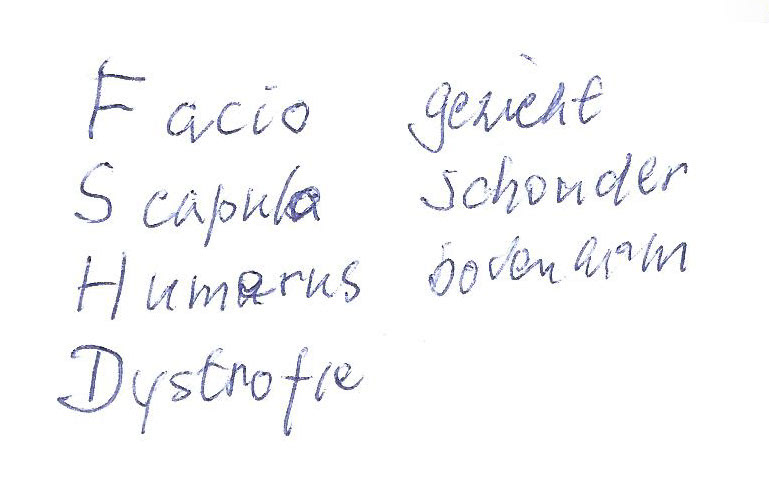 Facio gezicht
Scapula schouder
Humerus bovenarm
Dystrofie